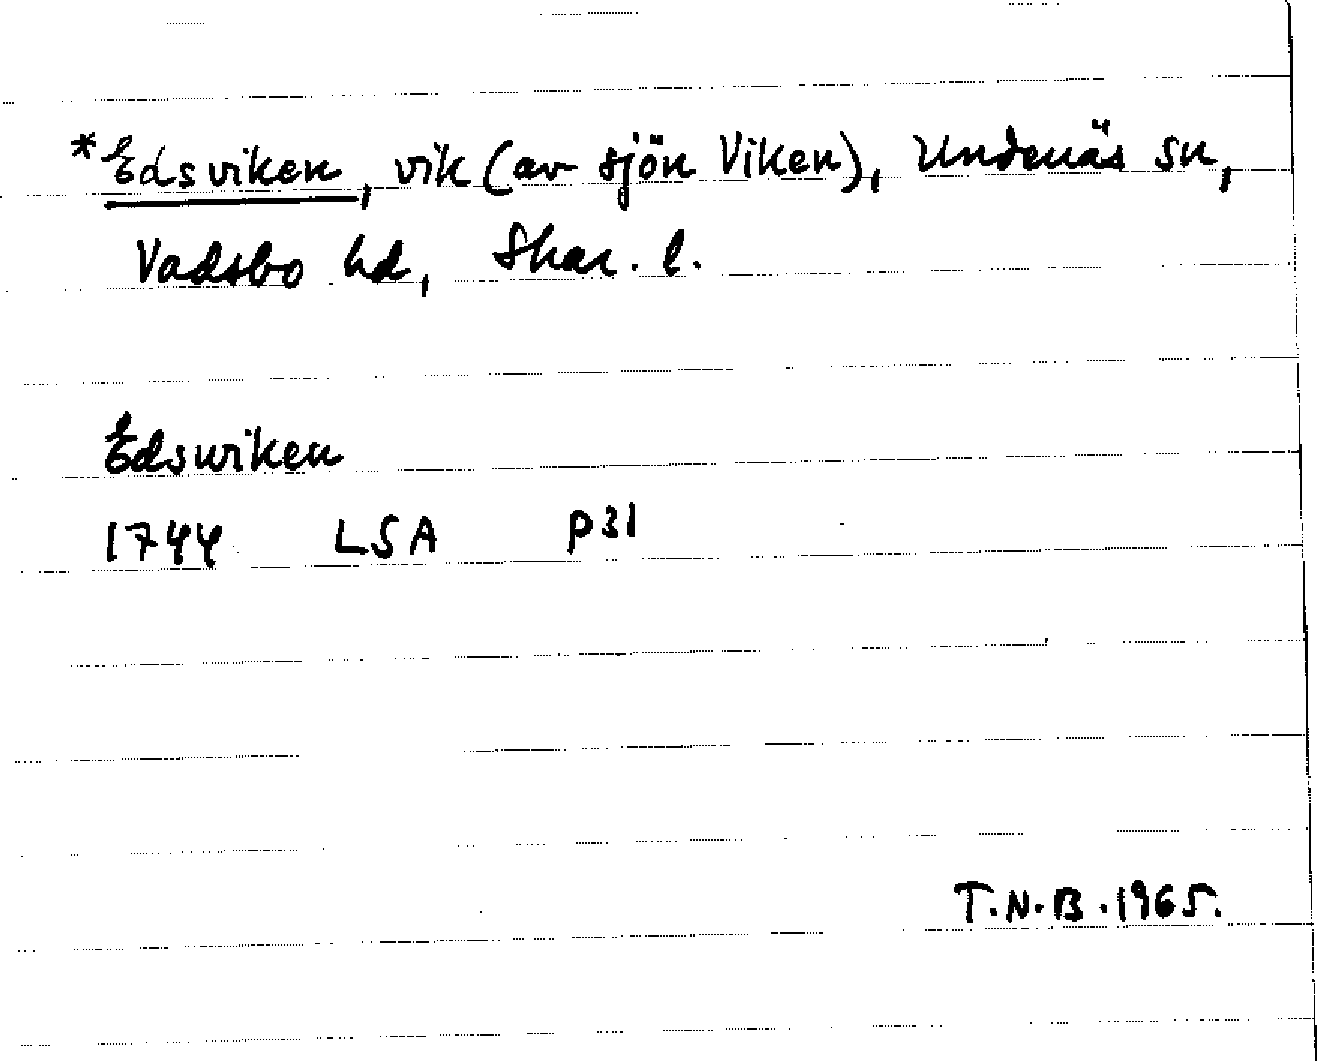 *Edsviken, vik (av sjön Viken), Undenäs sn,
Vadsbo hd, Skar. l.
Edswiken
1744 LSA P31
T.N.B. 1965.